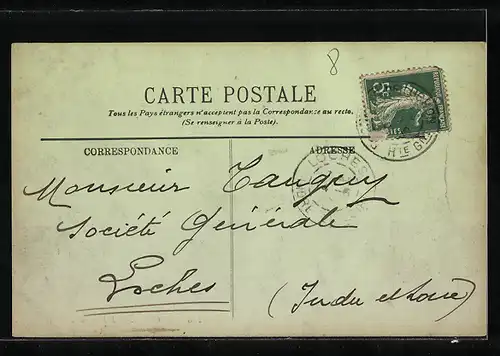 8
CARTE POSTALE
Tous les Pays étrangers n'acceptent pas la Correspondance au recto.
(Se renseigner à la Poste).
CORRESPONDANCE
ADRESSE
LOCHES
Hte
Monsieur Tanguy
Société Générale
Loches
(Indre et Loire)